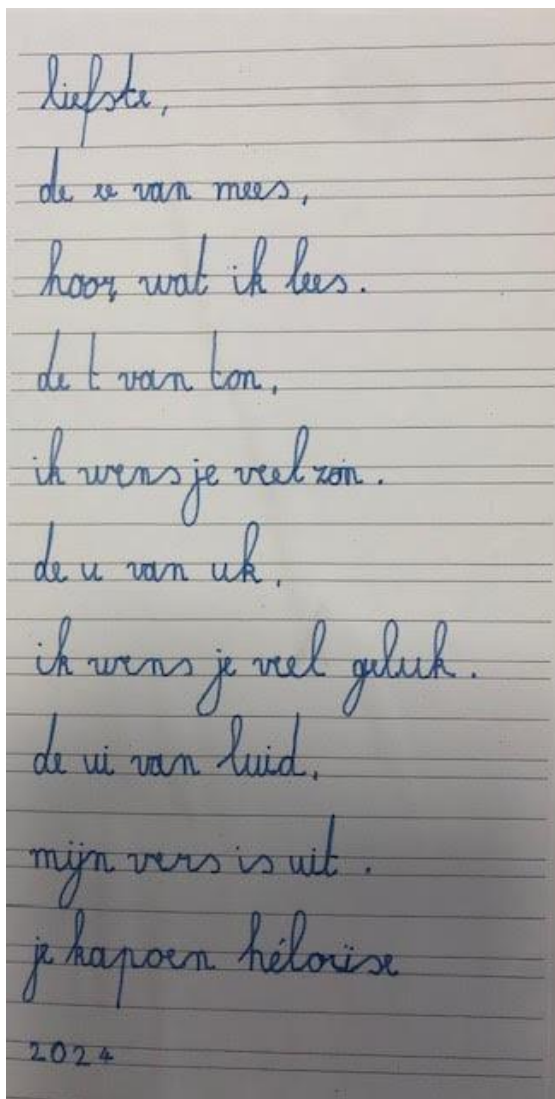 liefste,
de ee van mees,
hoor wat ik lees.
de t van ton,
ik wens je veel zon.
de u van uk,
ik wens je veel geluk.
de ui van luid,
mijn vers is uit.
je kapoen héloïse
2024